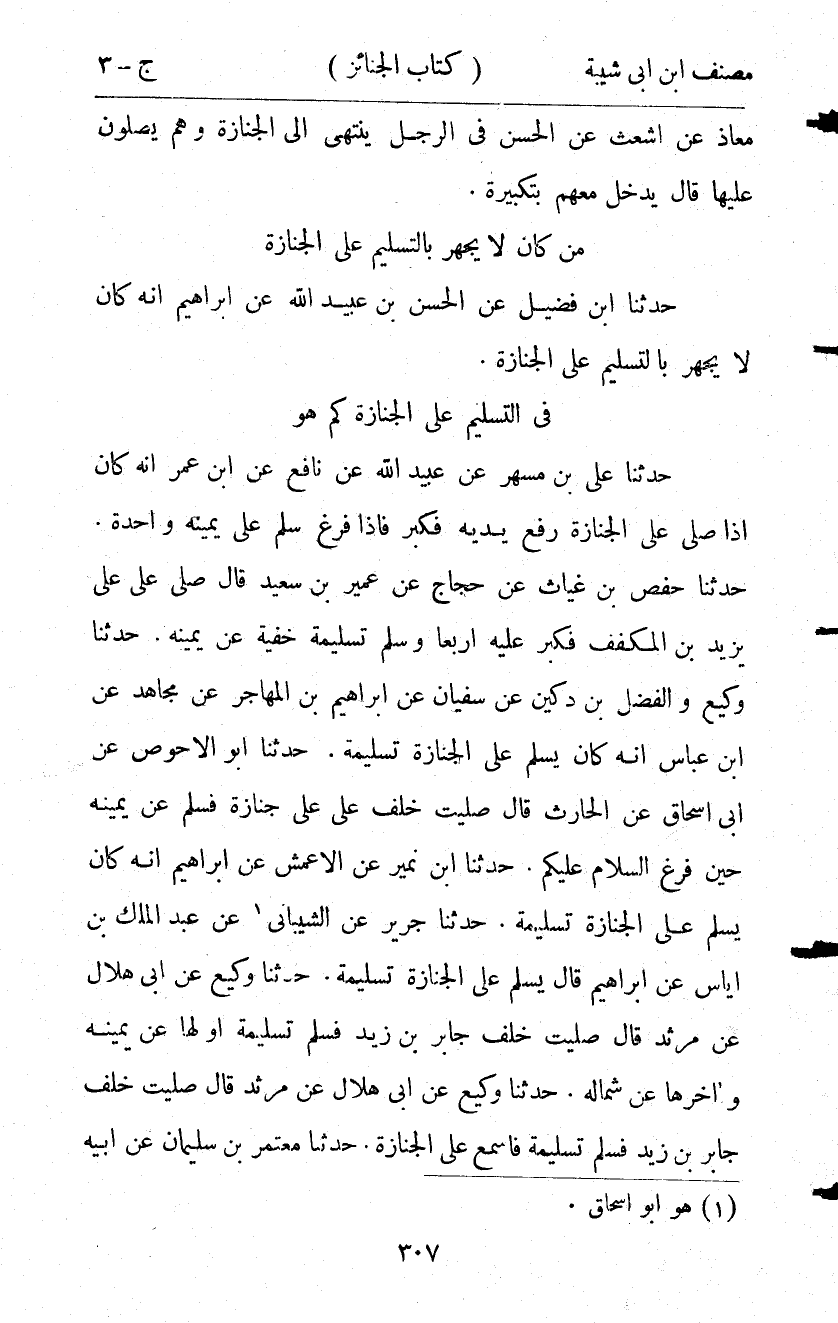 مصنف ابن ابى شيبة ( كتاب الجنائز ) ج - ٣
معاذ عن اشعث عن الحسن فى الرجل ينتهى الى الجنازة و هم يصلون
عليها قال يدخل معهم بتكبيرة .
من كان لا يجهر بالتسليم على الجنازة
حدثنا ابن فضيل عن الحسن بن عبيد الله عن ابراهيم انه كان
لا يجهر بالتسليم على الجنازة .
فى التسليم على الجنازة كم هو
حدثنا على بن مسهر عن عبيد الله عن نافع عن ابن عمر انه كان
اذا صلى على الجنازة رفع يديه فكبر فاذا فرغ سلم على يمينه واحدة .
حدثنا حفص بن غياث عن حجاج عن عمير بن سعيد قال صلى على على
يزيد بن المكفف فكبر عليه اربعا و سلم تسليمة خفية عن يمينه . حدثنا
وكيع و الفضل بن دكين عن سفيان عن ابراهيم بن المهاجر عن مجاهد عن
ابن عباس انه كان يسلم على الجنازة تسليمة . حدثنا ابو الاحوص عن
ابى اسحاق عن الحارث قال صليت خلف على على جنازة فسلم عن يمينه
حين فرغ السلام عليكم . حدثنا ابن نمير عن الاعمش عن ابراهيم انه كان
يسلم على الجنازة تسليمة . حدثنا جرير عن الشيبانى ١ عن عبد الملك بن
اياس عن ابراهيم قال يسلم على الجنازة تسليمة . حدثنا وكيع عن ابى هلال
عن مرثد قال صليت خلف جابر بن زيد فسلم تسليمة اولها عن يمينه
و اخرها عن شماله . حدثنا وكيع عن ابى هلال عن مرثد قال صليت خلف
جابر بن زيد فسلم تسليمة فاسمع على الجنازة . حدثنا معتمر بن سليمان عن ابيه
(١) هو ابو اسحاق .
٣٠٧